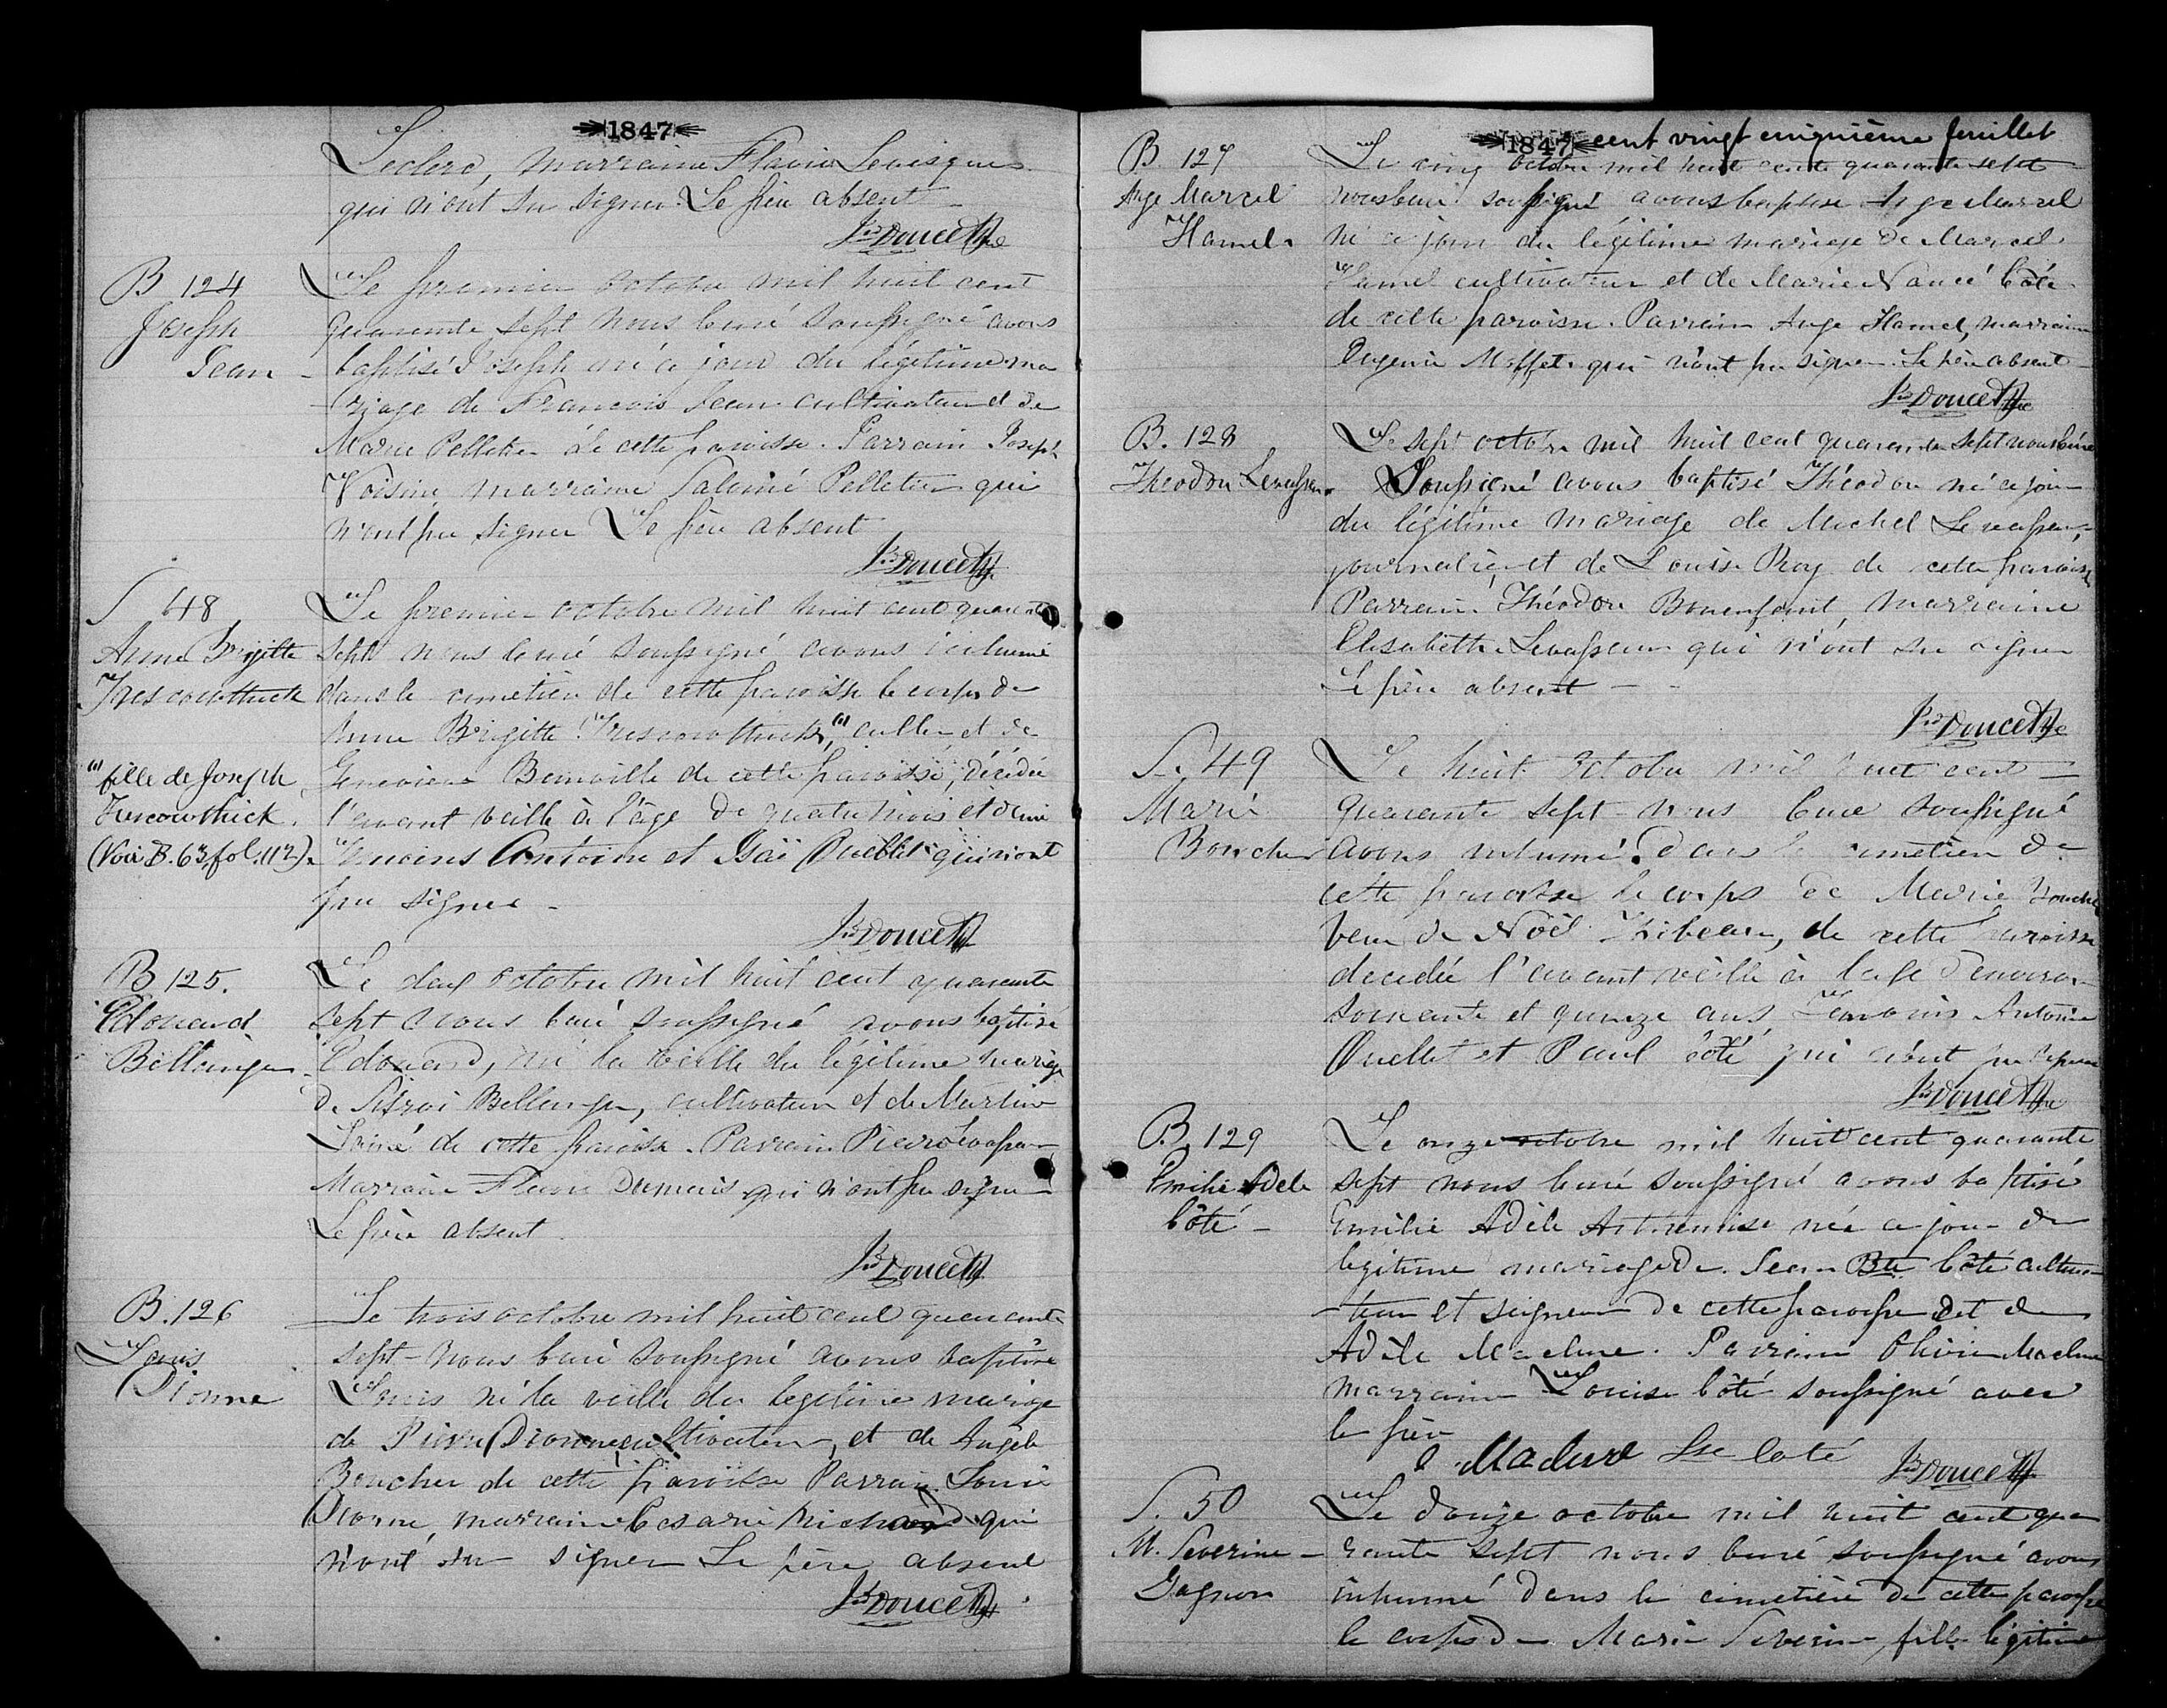 1847
Leclerc, marraine Flavie Levesque
qui n'ont su signer. Le père absent
Jos Doucet Ptre
B 124
Joseph
Jean
Le premier octobre mil huit cent
quarante sept nous Curé soussigné avons
baptisé Joseph né ce jour du légitime ma
riage de Francois Jean cultivateur et de
Marie Pelletier de cette paroisse. Parrain Joseph
Voisine, marraine Salomé Pelletier qui
n'ont pu signer Le père absent
Doucet Ptre
S 48
Anne Brigitte
Trescowthick
Le premier octobre mil huit cent quarante
sept nous Curé soussigné avons inhumé
dans le cimetière de cette paroisse le corps de
Anne Brigitte Trescowthick, (a) cultr et de
(a) fille de Joseph
Trescowthick.
(Voir B. 63 fol. 112).
Genevieve Bonville de cette paroisse, décédée
l'avant veille à l'âge de quatre mois et demi
Témoins Antoine et Isaï Ouellet qui n'ont
pu signer -
Doucet Ptre
B 125.
Edouard
Bellanger
Le deux octobre mil huit cent quarante
sept nous Curé soussigné avons baptisé
Edouard, né la veille du légitime mariage
de Bellanger, cultivateur et de
de cette paroisse. Parrain Pierre Levasseur
Marraine Dumais qui n'ont pu signer
Le père absent.
Doucet Ptre
B. 126
Louis
Dionne
Le trois octobre mil huit cent quarante
sept - nous Curé soussigné avons baptisé
Louis né la veille du legitime mariage
de Pierre Dionne cultivateur, et de Angèle
Boucher de cette paroisse Parrain Louis
Dionne, marraine Cesarie Michaud qui
n'ont su signer Le père absent
Doucet Ptre
1847 cent vingt cinquième feuillet
B. 127
Ange Marcel
Hamel
Le cinq octobre mil huit cent quarante sept
nous Curé soussigné avons baptisé Ange Marcel
né ce jour du légitime mariage de Marcel
Hamel cultivateur et de Marie Nancé Côté
de cette paroisse. Parrain Ange Hamel, marraine
Eugenie Moffet qui n'ont pu signer. Le père absent
Doucet Ptre
B. 128
Théodore Levasseur
Le sept octobre mil huit cent quarante sept nous Curé
Soussigné avons baptisé Théodore né ce jour
du légitime mariage de Michel Levasseur,
journalier et de Louise Roy de cette paroisse
Parrain Théodore Bonenfant, marraine
Elisabeth Levasseur qui n'ont su signer
Le père absent -
Doucet Ptre
S. 49
Marie
Boucher
Le huit octobre mil huit cent
quarante sept - nous Curé soussigné
avons inhumé dans le cimetière de
cette paroisse le corps de Marie Boucher
veuve de Noël Thibeau, de cette paroisse
decedée l'avant veille à l'age d'environ
soixante et quinze ans Temoins Antoine
Ouellet et Paul Côté qui n'ont pu signer
Doucet Ptre
B. 129
Emilie Adèle
Côté -
Le onze octobre mil huit cent quarante
sept nous Curé soussigné avons baptisé
Emilie Adèle Arthemise née ce jour du
légitime mariage de Jean Bte Côté cultiva-
teur et seigneur de cette paroisse et de
Adèle Maclure. Parrain Maclure
marraine Louise Côté soussigné avec
le père
Maclure Lse Coté Doucet Ptre
S. 50
M. Severine
Gagnon
Le douze octobre mil huit cent qua
rante sept nous Curé soussigné avons
inhumé dans le cimetière de cette paroisse
le corps de Marie Severine, fille légitime